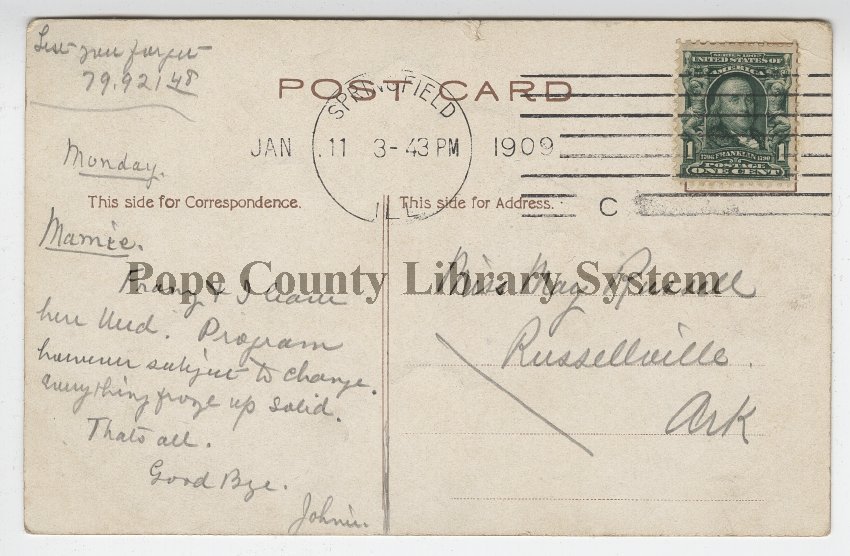 Lest you forget
79.92148
POST CARD
SPRINGFIELD
JAN 11 3-43 PM 1909
ILL.
C
SERIES 1902
UNITED STATES OF
AMERICA
1 1706 FRANKLIN 1790 1
POSTAGE
ONE CENT
Monday.
This side for Correspondence.
This side for Address.
Mamie.
& I leave
here Wed. Program
however subject to change.
everything froze up solid.
Thats all.
Good Bye.
Johnie.
Pope County Library System
Miss May Russell
Russellville.
Ark